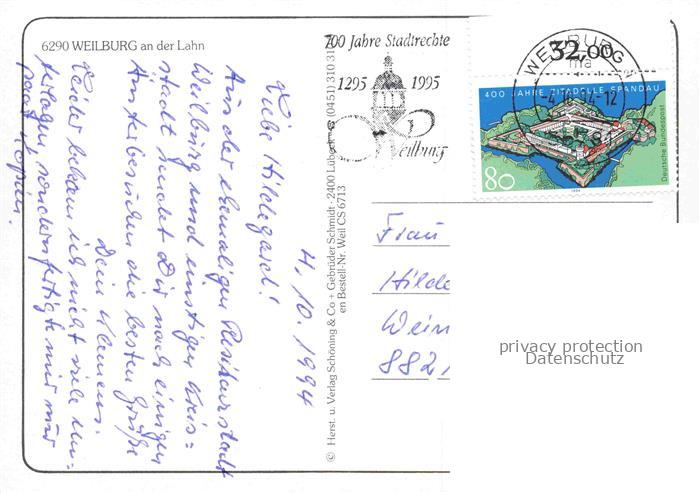 6290 WEILBURG an der Lahn
4. 10. 1994
Liebe Hildegard!
Aus der ehemaligen Residenzstadt
Weilburg und einstigen Kreis=
stadt sendet Dir nach einigen
Amterbesuchen die besten Grüße
Dein Klemens.
Leider bekam ich nicht viele Un=
terlagen, sondern fertigte mir nur
paar Kopien.
© Herst. u. Verlag Schöning & Co + Gebrüder Schmidt · 2400 Lübeck · (0451) 310 31
en Bestell-Nr. Weil CS 6713
700 Jahre Stadtrechte
1295 1995
Weilburg
32,00
WEILBURG
400 JAHRE ZITADELLE SPANDAU
80
Deutsche Bundespost
1994
Frau
Hilde
Wein
882
privacy protection
Datenschutz